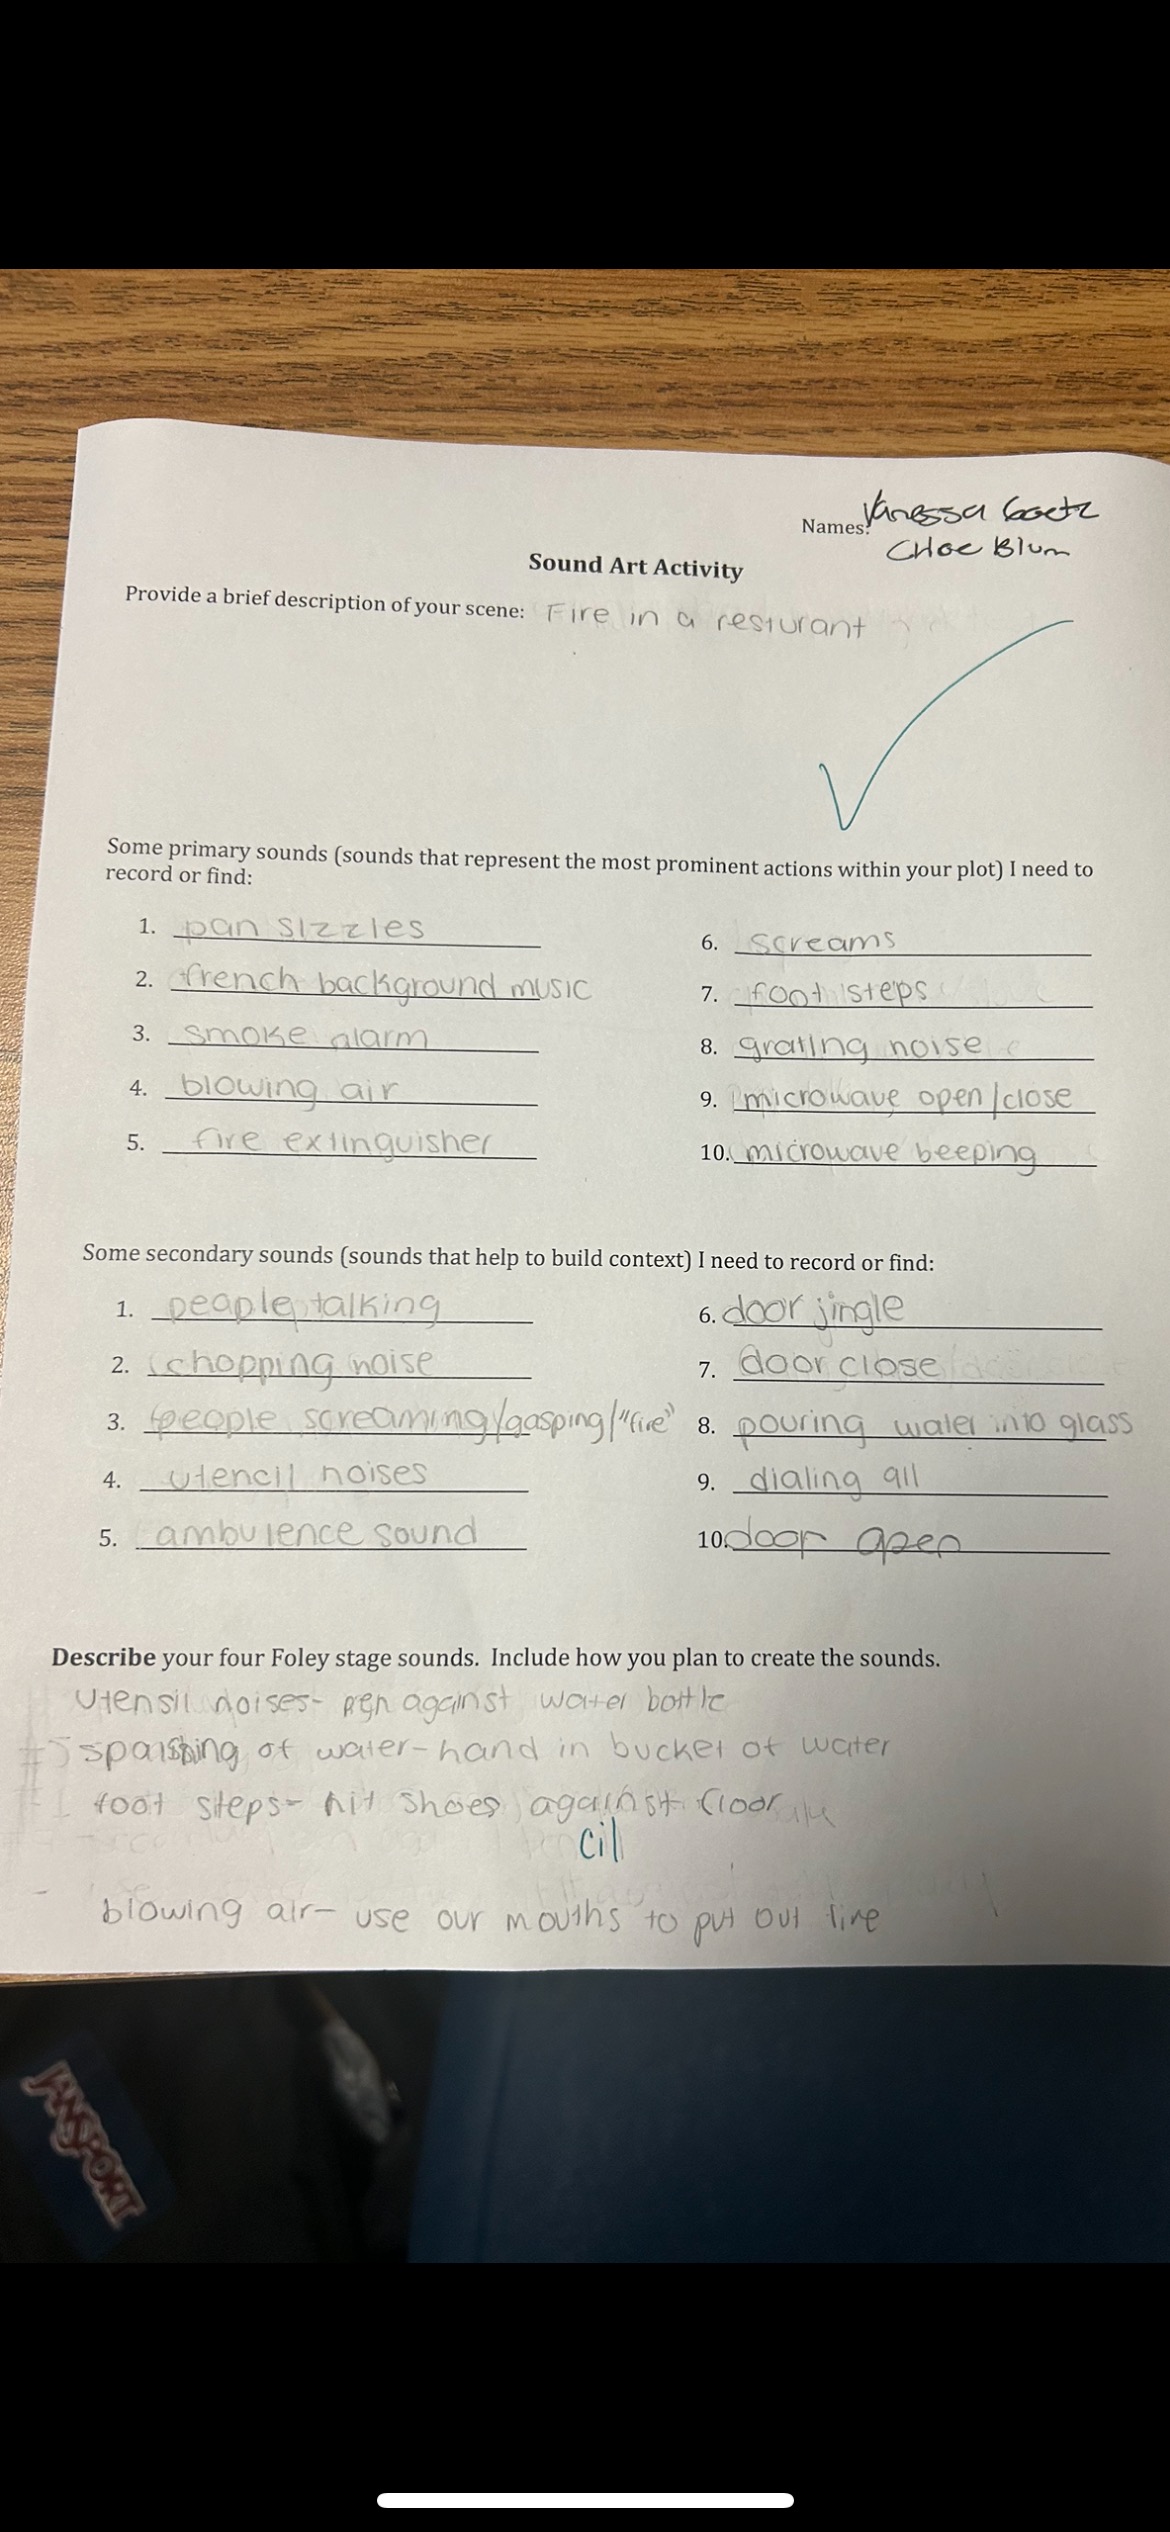 Names: Vanessa Goetz
Chloe Blum
Sound Art Activity
Provide a brief description of your scene: Fire in a resturant
Some primary sounds (sounds that represent the most prominent actions within your plot) I need to
record or find:
1. pan sizzles
2. french background music
3. smoke alarm
4. blowing air
5. fire extinguisher
6. screams
7. foot steps
8. grating noise
9. microwave open/close
10. microwave beeping
Some secondary sounds (sounds that help to build context) I need to record or find:
1. people talking
2. chopping noise
3. people screaming/gasping/"fire"
4. utencil noises
5. ambulence sound
6. door jingle
7. door close
8. pouring water into glass
9. dialing 911
10. door open
Describe your four Foley stage sounds. Include how you plan to create the sounds.
Utensil noises- pen against water bottle
of water-hand in bucket of water
foot steps- hit shoes against floor
cil
blowing air- use our mouths to put out fire
JANSPORT